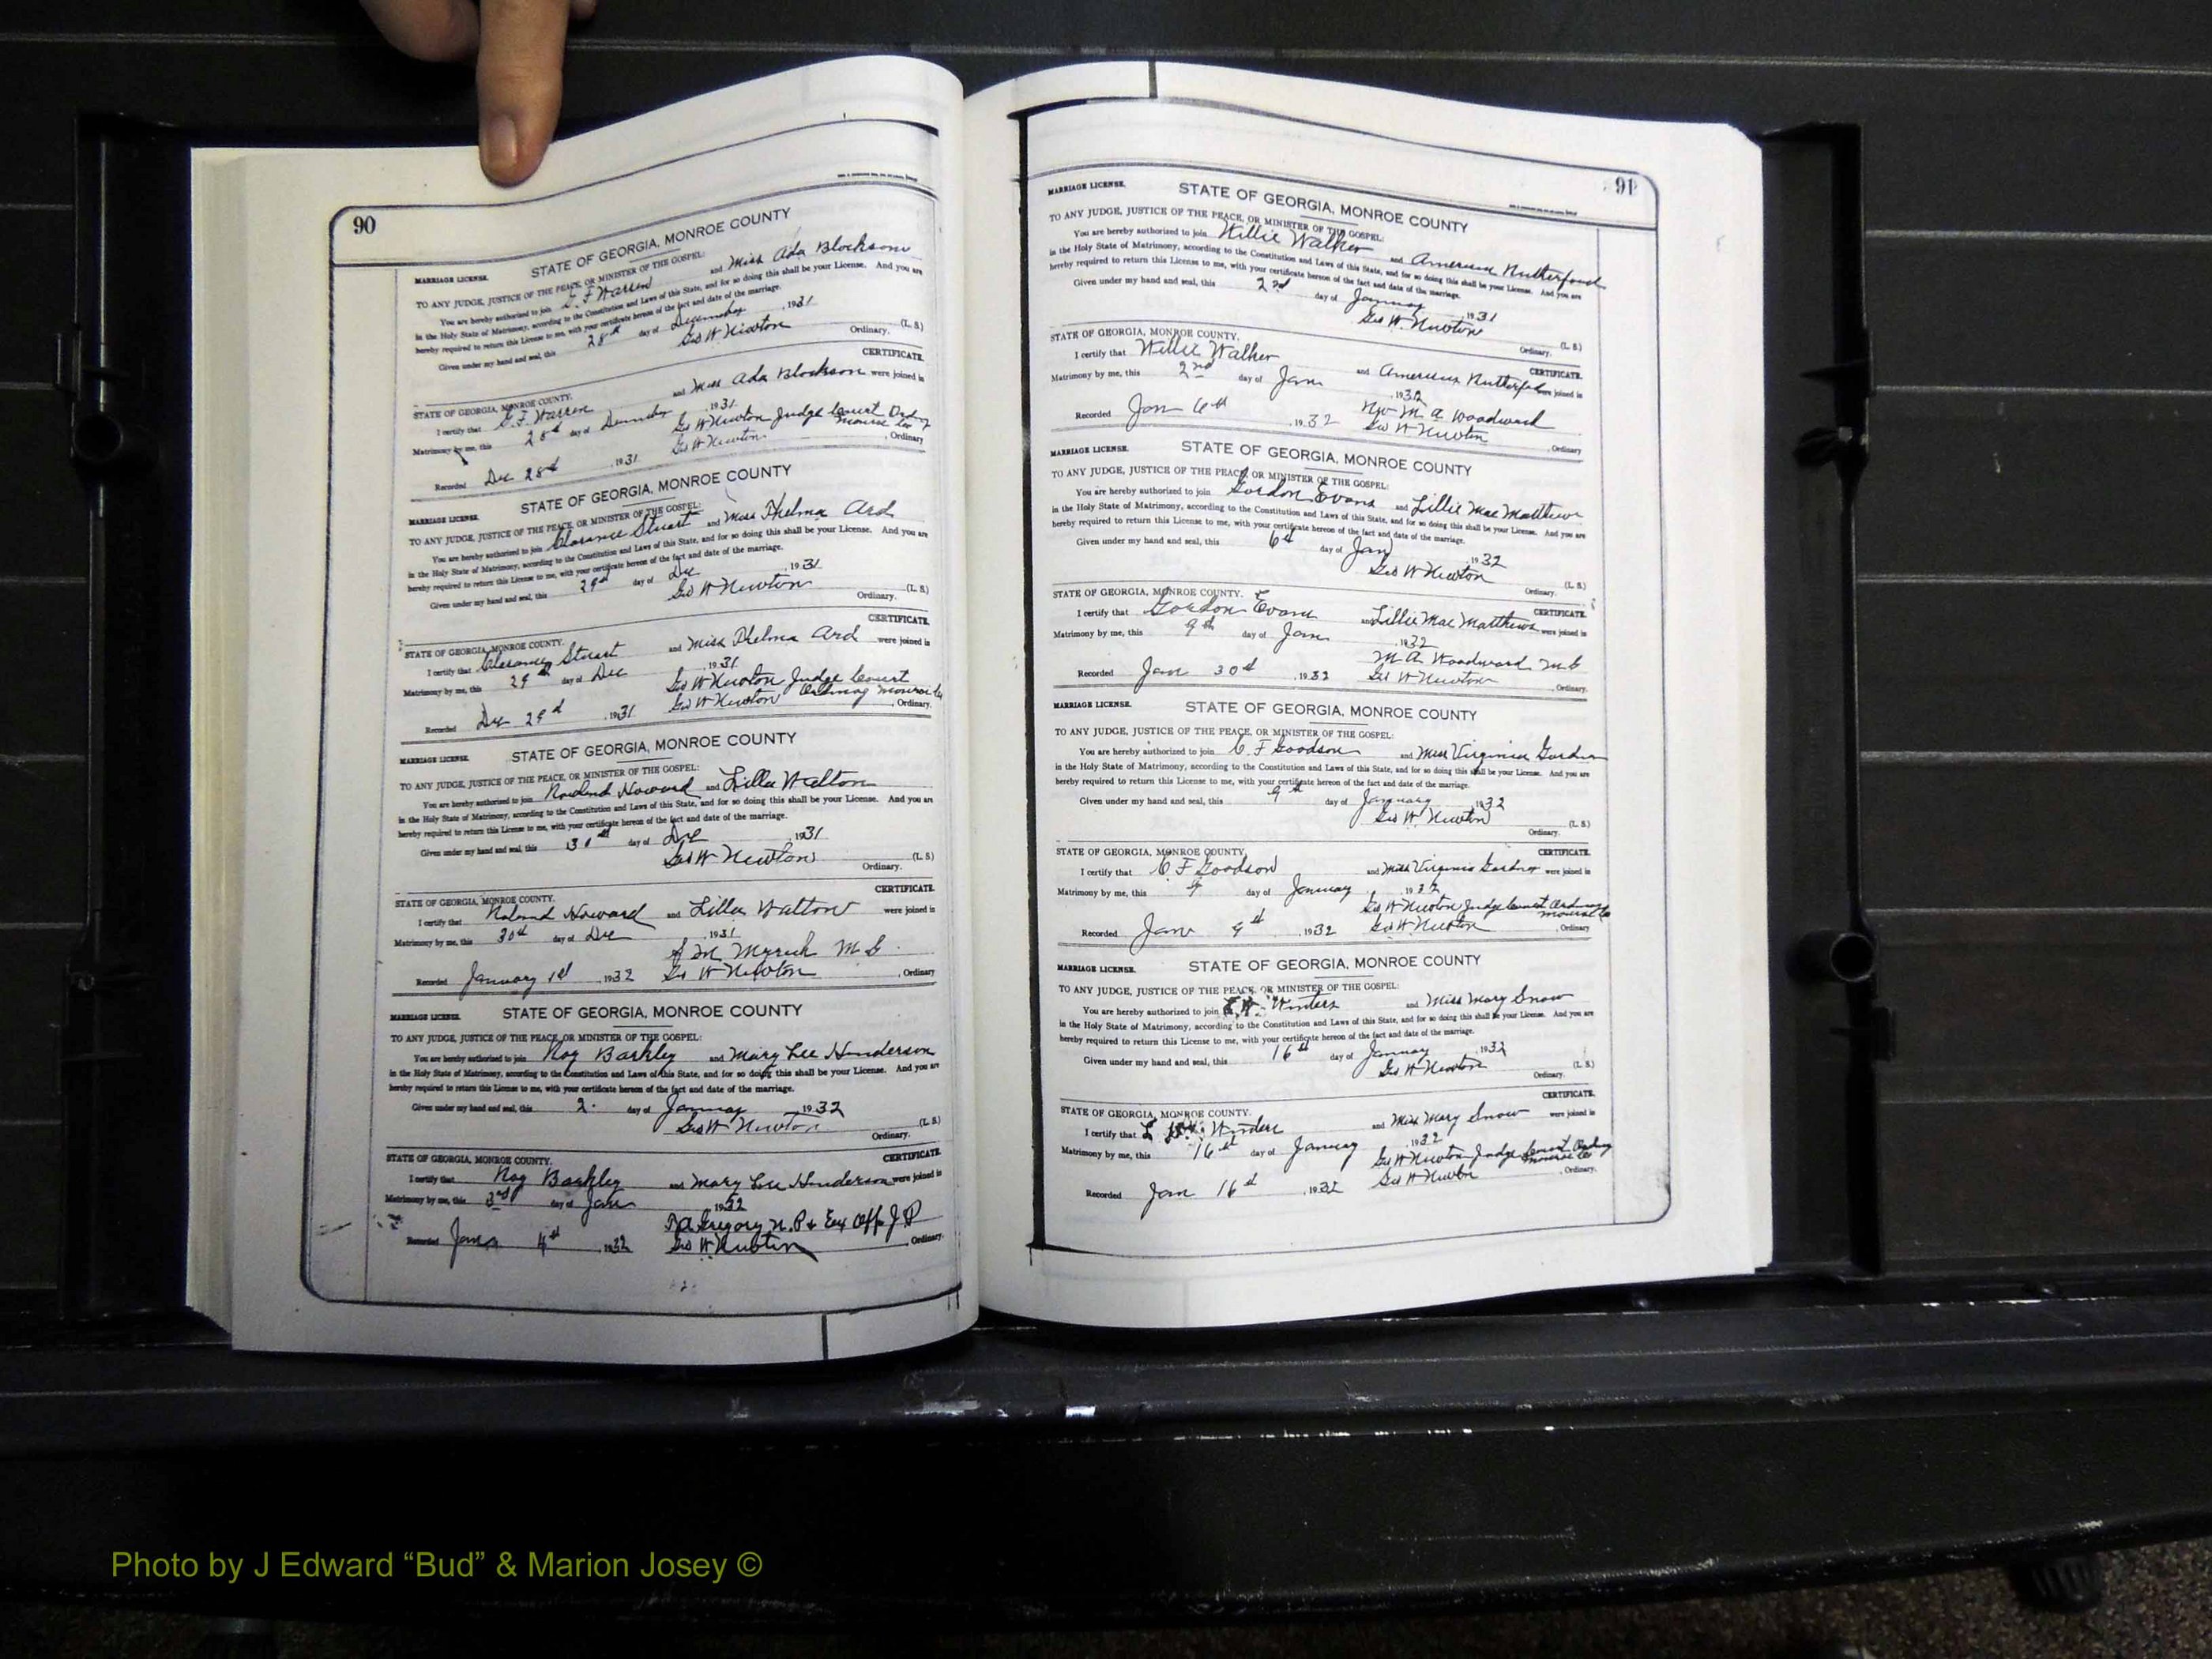 90
MARRIAGE LICENSE. STATE OF GEORGIA, MONROE COUNTY
TO ANY JUDGE, JUSTICE OF THE PEACE, OR MINISTER OF THE GOSPEL:
You are hereby authorized to join G. F. Warren and Miss Ada Blackson
in the Holy State of Matrimony, according to the Constitution and Laws of this State, and for so doing this shall be your License. And you are
hereby required to return this License to me, with your certificate hereon of the fact and date of the marriage.
Given under my hand and seal, this 28th day of December, 1931
Geo W. Newton (L. S.)
Ordinary.
CERTIFICATE.
STATE OF GEORGIA, MONROE COUNTY.
I certify that G. F. Warren and Miss Ada Blackson were joined in
Matrimony by me, this 28th day of December, 1931
Geo W Newton Judge Court Ordinary
Monroe Co
Recorded Dec 28th, 1931 Geo W Newton, Ordinary
MARRIAGE LICENSE. STATE OF GEORGIA, MONROE COUNTY
TO ANY JUDGE, JUSTICE OF THE PEACE, OR MINISTER OF THE GOSPEL:
You are hereby authorized to join Clarance Stuart and Miss Thelma Ard
in the Holy State of Matrimony, according to the Constitution and Laws of this State, and for so doing this shall be your License. And you are
hereby required to return this License to me, with your certificate hereon of the fact and date of the marriage.
Given under my hand and seal, this 29th day of Dec, 1931
Geo W Newton (L. S.)
Ordinary.
CERTIFICATE.
STATE OF GEORGIA, MONROE COUNTY.
I certify that Clarance Stuart and Miss Thelma Ard were joined in
Matrimony by me, this 29th day of Dec, 1931
Geo W Newton Judge Court
Ordinary Monroe Co
Recorded Dec 29th, 1931 Geo W Newton, Ordinary.
MARRIAGE LICENSE. STATE OF GEORGIA, MONROE COUNTY
TO ANY JUDGE, JUSTICE OF THE PEACE, OR MINISTER OF THE GOSPEL:
You are hereby authorized to join Roland Howard and Lilla Walton
in the Holy State of Matrimony, according to the Constitution and Laws of this State, and for so doing this shall be your License. And you are
hereby required to return this License to me, with your certificate hereon of the fact and date of the marriage.
Given under my hand and seal, this day of Dec, 1931
Geo W Newton (L. S.)
Ordinary.
CERTIFICATE.
STATE OF GEORGIA, MONROE COUNTY.
I certify that Roland Howard and Lilla Walton were joined in
Matrimony by me, this 30th day of Dec, 1931
Myrick M. G.
Recorded January 1st, 1932 Geo W Newton, Ordinary
MARRIAGE LICENSE. STATE OF GEORGIA, MONROE COUNTY
TO ANY JUDGE, JUSTICE OF THE PEACE, OR MINISTER OF THE GOSPEL:
You are hereby authorized to join Roy Barkley and Mary Lee Henderson
in the Holy State of Matrimony, according to the Constitution and Laws of this State, and for so doing this shall be your License. And you are
hereby required to return this License to me, with your certificate hereon of the fact and date of the marriage.
Given under my hand and seal, this 2. day of January 1932
Geo W Newton (L. S.)
Ordinary.
CERTIFICATE.
STATE OF GEORGIA, MONROE COUNTY.
I certify that Roy Barkley and Mary Lee Henderson were joined in
Matrimony by me, this 3rd day of Jan 1932
Gregory N. P & Ex Off J P
Recorded Jan 4th, 1932 Geo W Newton, Ordinary.
91
MARRIAGE LICENSE. STATE OF GEORGIA, MONROE COUNTY
TO ANY JUDGE, JUSTICE OF THE PEACE, OR MINISTER OF THE GOSPEL:
You are hereby authorized to join Willie Walker and Americus Rutherford
in the Holy State of Matrimony, according to the Constitution and Laws of this State, and for so doing this shall be your License. And you are
hereby required to return this License to me, with your certificate hereon of the fact and date of the marriage.
Given under my hand and seal, this 2nd day of January, 1931
Geo W. Newton (L. S.)
Ordinary.
STATE OF GEORGIA, MONROE COUNTY. CERTIFICATE.
I certify that Willie Walker and Americus Rutherford were joined in
Matrimony by me, this 2nd day of Jan, 1932
M A Woodward
Recorded Jan 6th, 1932 Geo W Newton, Ordinary
MARRIAGE LICENSE. STATE OF GEORGIA, MONROE COUNTY
TO ANY JUDGE, JUSTICE OF THE PEACE, OR MINISTER OF THE GOSPEL:
You are hereby authorized to join Gordon Evans and Lillie Mae Matthews
in the Holy State of Matrimony, according to the Constitution and Laws of this State, and for so doing this shall be your License. And you are
hereby required to return this License to me, with your certificate hereon of the fact and date of the marriage.
Given under my hand and seal, this 6th day of Jan, 1932
Geo W Newton (L. S.)
Ordinary.
STATE OF GEORGIA, MONROE COUNTY. CERTIFICATE.
I certify that Gordon Evans and Lillie Mae Matthews were joined in
Matrimony by me, this 9th day of Jan, 1932
M. A. Woodward M G
Recorded Jan 30th, 1932 Geo W Newton, Ordinary.
MARRIAGE LICENSE. STATE OF GEORGIA, MONROE COUNTY
TO ANY JUDGE, JUSTICE OF THE PEACE, OR MINISTER OF THE GOSPEL:
You are hereby authorized to join C. F Goodson and Miss Virginia Gardner
in the Holy State of Matrimony, according to the Constitution and Laws of this State, and for so doing this shall be your License. And you are
hereby required to return this License to me, with your certificate hereon of the fact and date of the marriage.
Given under my hand and seal, this 9th day of January, 1932
Geo W. Newton (L. S.)
Ordinary.
STATE OF GEORGIA, MONROE COUNTY. CERTIFICATE.
I certify that C F Goodson and Miss Virginia Gardner were joined in
Matrimony by me, this 9 day of January, 1932
Geo W Newton Judge Court Ordinary
Monroe Co
Recorded Jan 9th, 1932 Geo W Newton, Ordinary
MARRIAGE LICENSE. STATE OF GEORGIA, MONROE COUNTY
TO ANY JUDGE, JUSTICE OF THE PEACE, OR MINISTER OF THE GOSPEL:
You are hereby authorized to join Winters and Miss Mary Snow
in the Holy State of Matrimony, according to the Constitution and Laws of this State, and for so doing this shall be your License. And you are
hereby required to return this License to me, with your certificate hereon of the fact and date of the marriage.
Given under my hand and seal, this 16th day of January, 1932
Geo W Newton (L. S.)
Ordinary.
CERTIFICATE.
STATE OF GEORGIA, MONROE COUNTY.
I certify that Winters and Miss Mary Snow were joined in
Matrimony by me, this 16th day of January, 1932
Geo W Newton Judge Court Ordinary
Monroe Co
Recorded Jan 16th, 1932 Geo W Newton, Ordinary.
Photo by J Edward “Bud” & Marion Josey ©